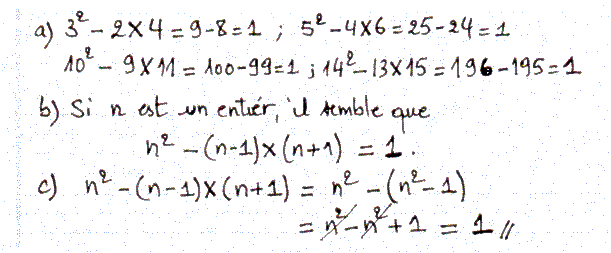 a) 3² - 2×4 = 9-8 = 1 ; 5² - 4×6 = 25 - 24 = 1
10² - 9×11 = 100-99=1 ; 14² - 13×15 = 196 - 195 = 1
b) Si n est un entiér, il semble que
n² - (n-1)×(n+1) = 1.
c) n² - (n-1)×(n+1) = n² - (n² - 1)
= n² - n² + 1 = 1 //